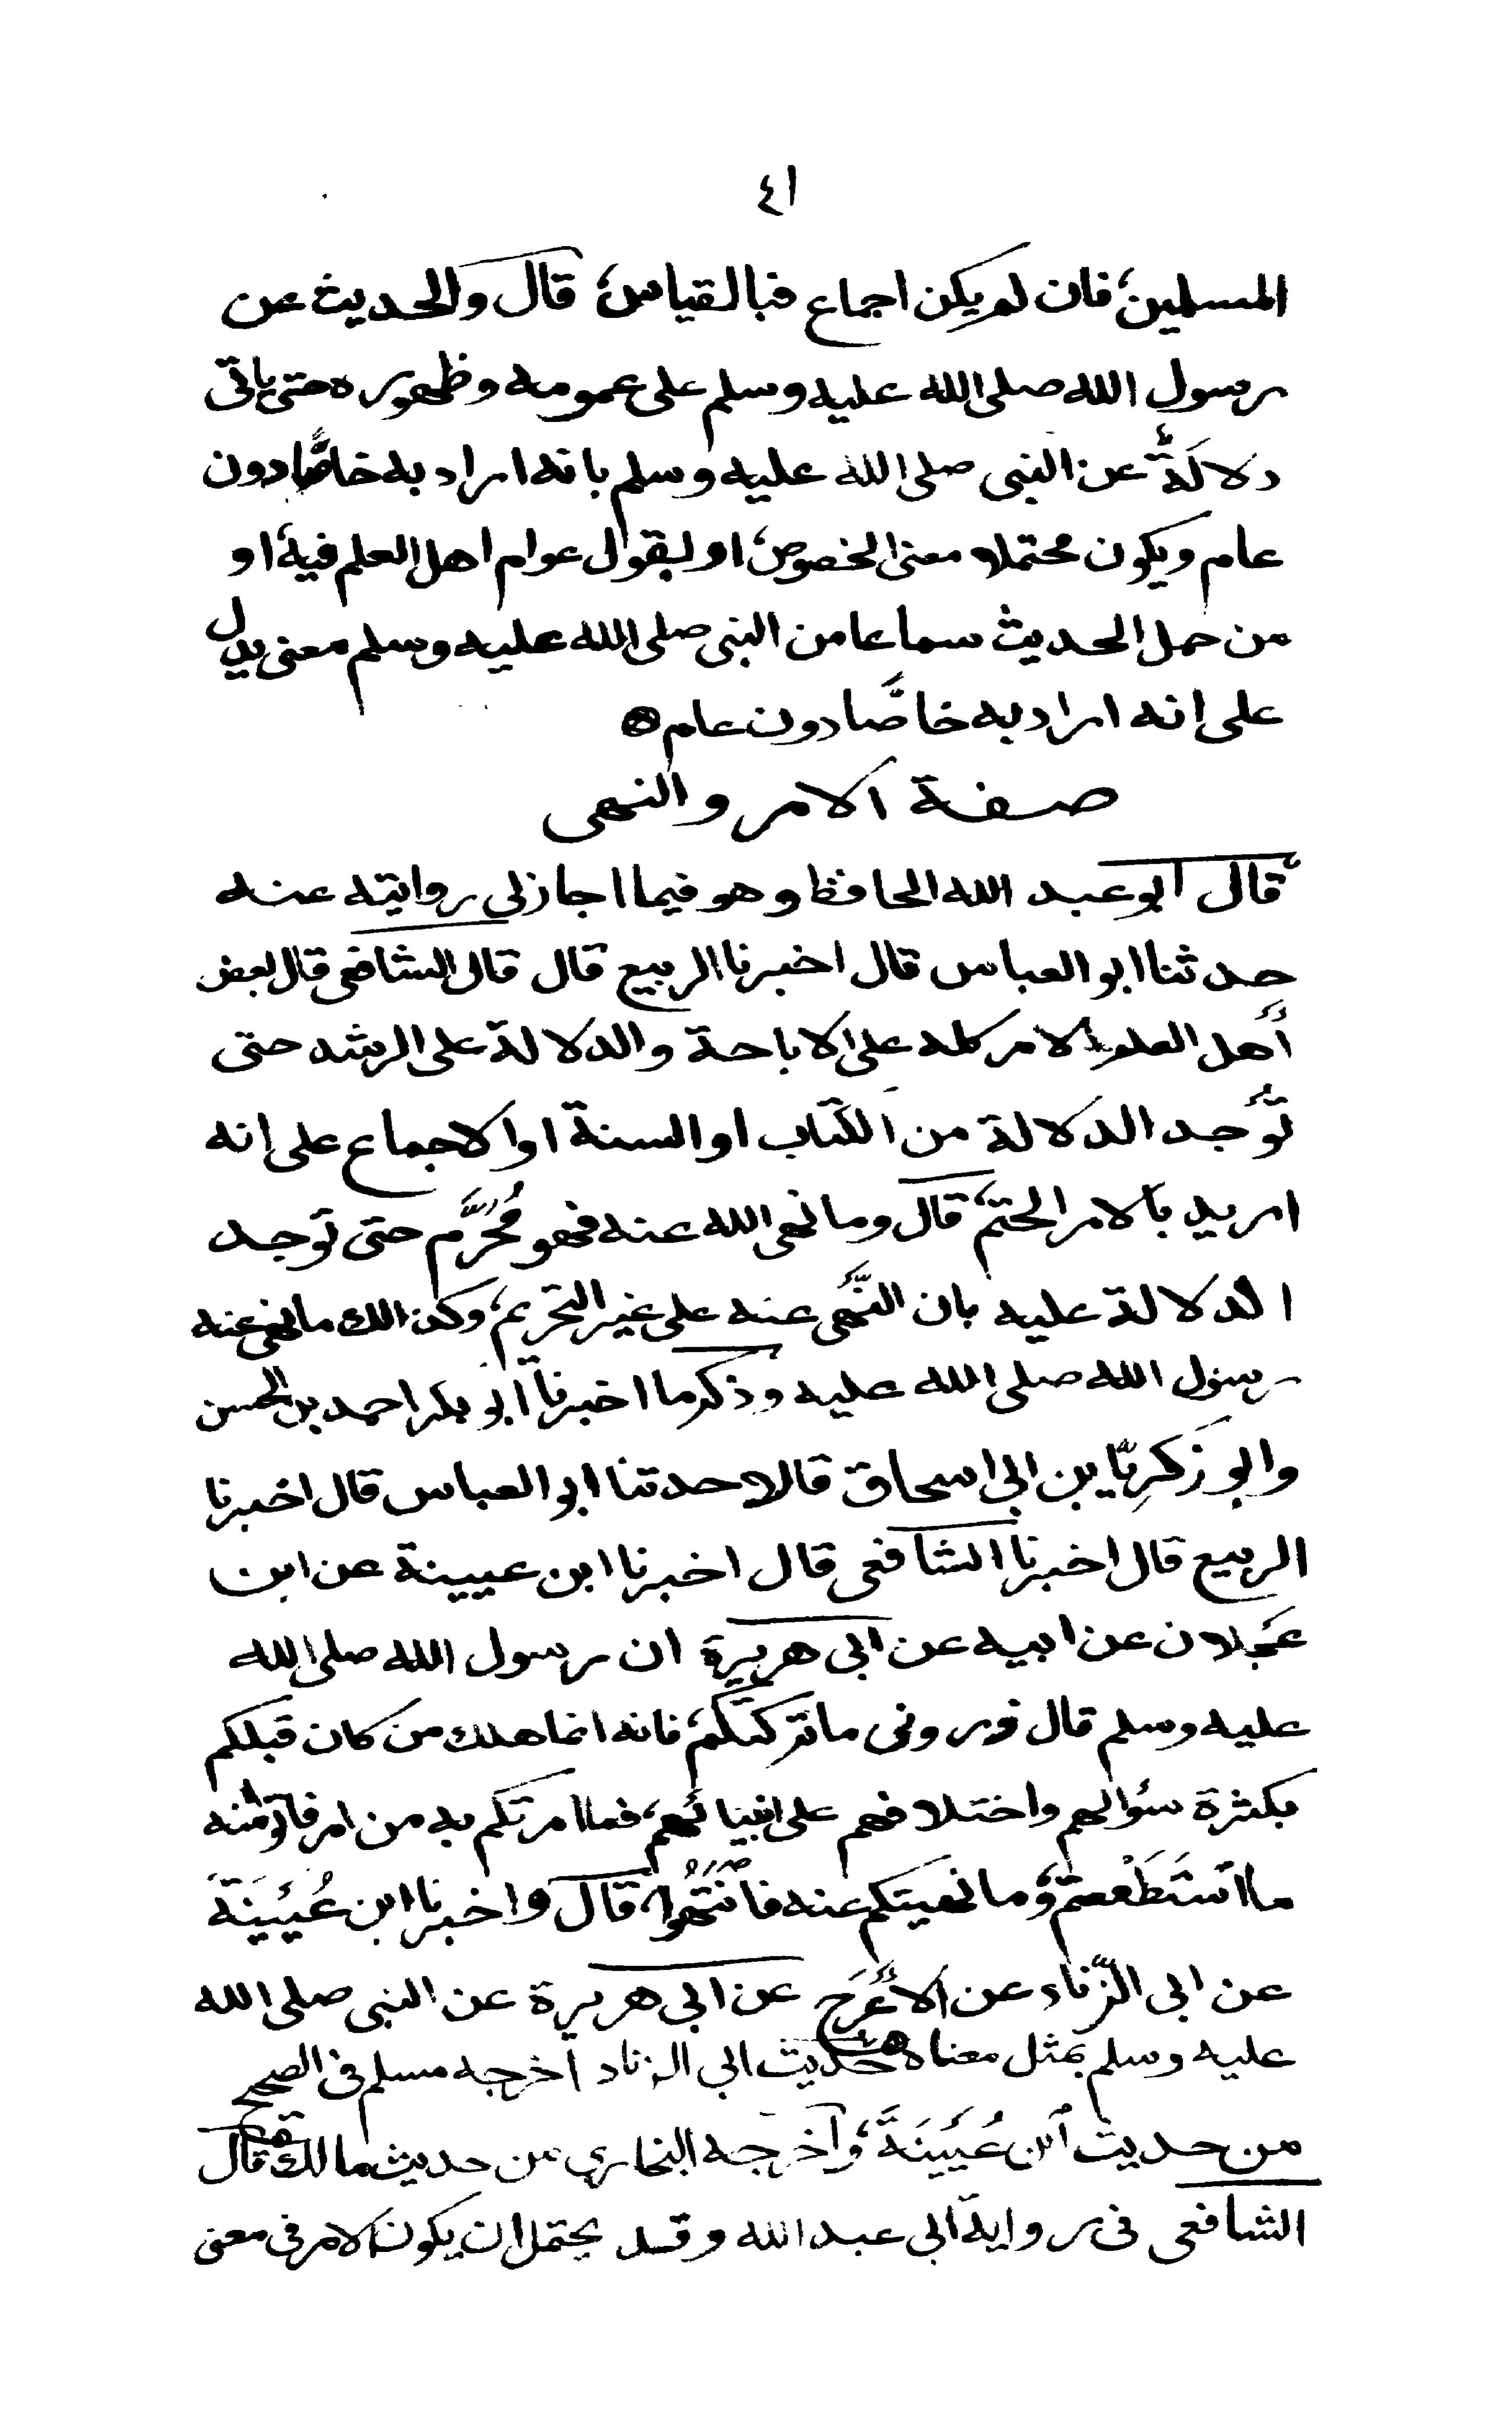 ٤١
المسلمين، فان لم يكن اجماع فبالقياس، قال والحديث عن
رسول الله صلى الله عليه وسلم على عمومه وظهوره حتى ياتى
دلالَةٌ عن النبى صلى الله عليه وسلم بانه اراد به خاصًّا دون
عام ويكون محتملا معنى الخصوص، او بقول عوام اهل العلم فيه، او
من حمل الحديث سماعا من النبى صلى الله عليه وسلم معنى يدل
على انه اراد به خاصًّا دون عام
صفة الامر والنهى
قال ابو عبد الله الحافظ وهو فيما اجاز لى روايته عنه
حدثنا ابو العباس قال اخبرنا الربيع قال قال الشافعى قال بعض
أهل العلم الامر كله على الاباحة والدلالة على الرشد حتى
تُوجد الدلالة من الكتاب او السنة او الاجماع على انه
اريد بالامر الحتم، قال وما نهى الله عنه فهو مُحَرَّم حتى توجد
الدلالة عليه بان النَّهى عنه على غير التحريم، وكذالك ما نهى عنه
رسول الله صلى الله عليه وذكر ما اخبرنا ابو بكر احمد بن الحسن
وابو زَكرِيّا بن ابى اسحاق قالا حدثنا ابو العباس قال اخبرنا
الربيع قال اخبرنا الشافعى قال اخبرنا ابن عيينة عن ابن
عَجلان عن ابيه عن ابى هريرة ان رسول الله صلى الله
عليه وسلم قال ذرونى ما تركتكم، فانه انما هلك من كان قبلكم
بكثرة سؤالهم واختلافهم على انبيائهم، فما امرتكم به من امر فأتوا منه
ما استَطَعْتم، وما نهيتكم عنه فانْتَهُوا، قال واخبرنا ابن عُيَيْنَةَ
عن ابى الزّناد عن الأَعْرَج عن ابى هريرة عن النبى صلى الله
عليه وسلم بمثل معناه حديث ابى الزناد اخرجه مسلم فى الصحيح
من حديث ابن عُيَيْنَةَ، وأخرجه البخارى من حديث مالك قال
الشافعى فى رواية ابى عبد الله وقد يحتمل ان يكون الامر فى معنى